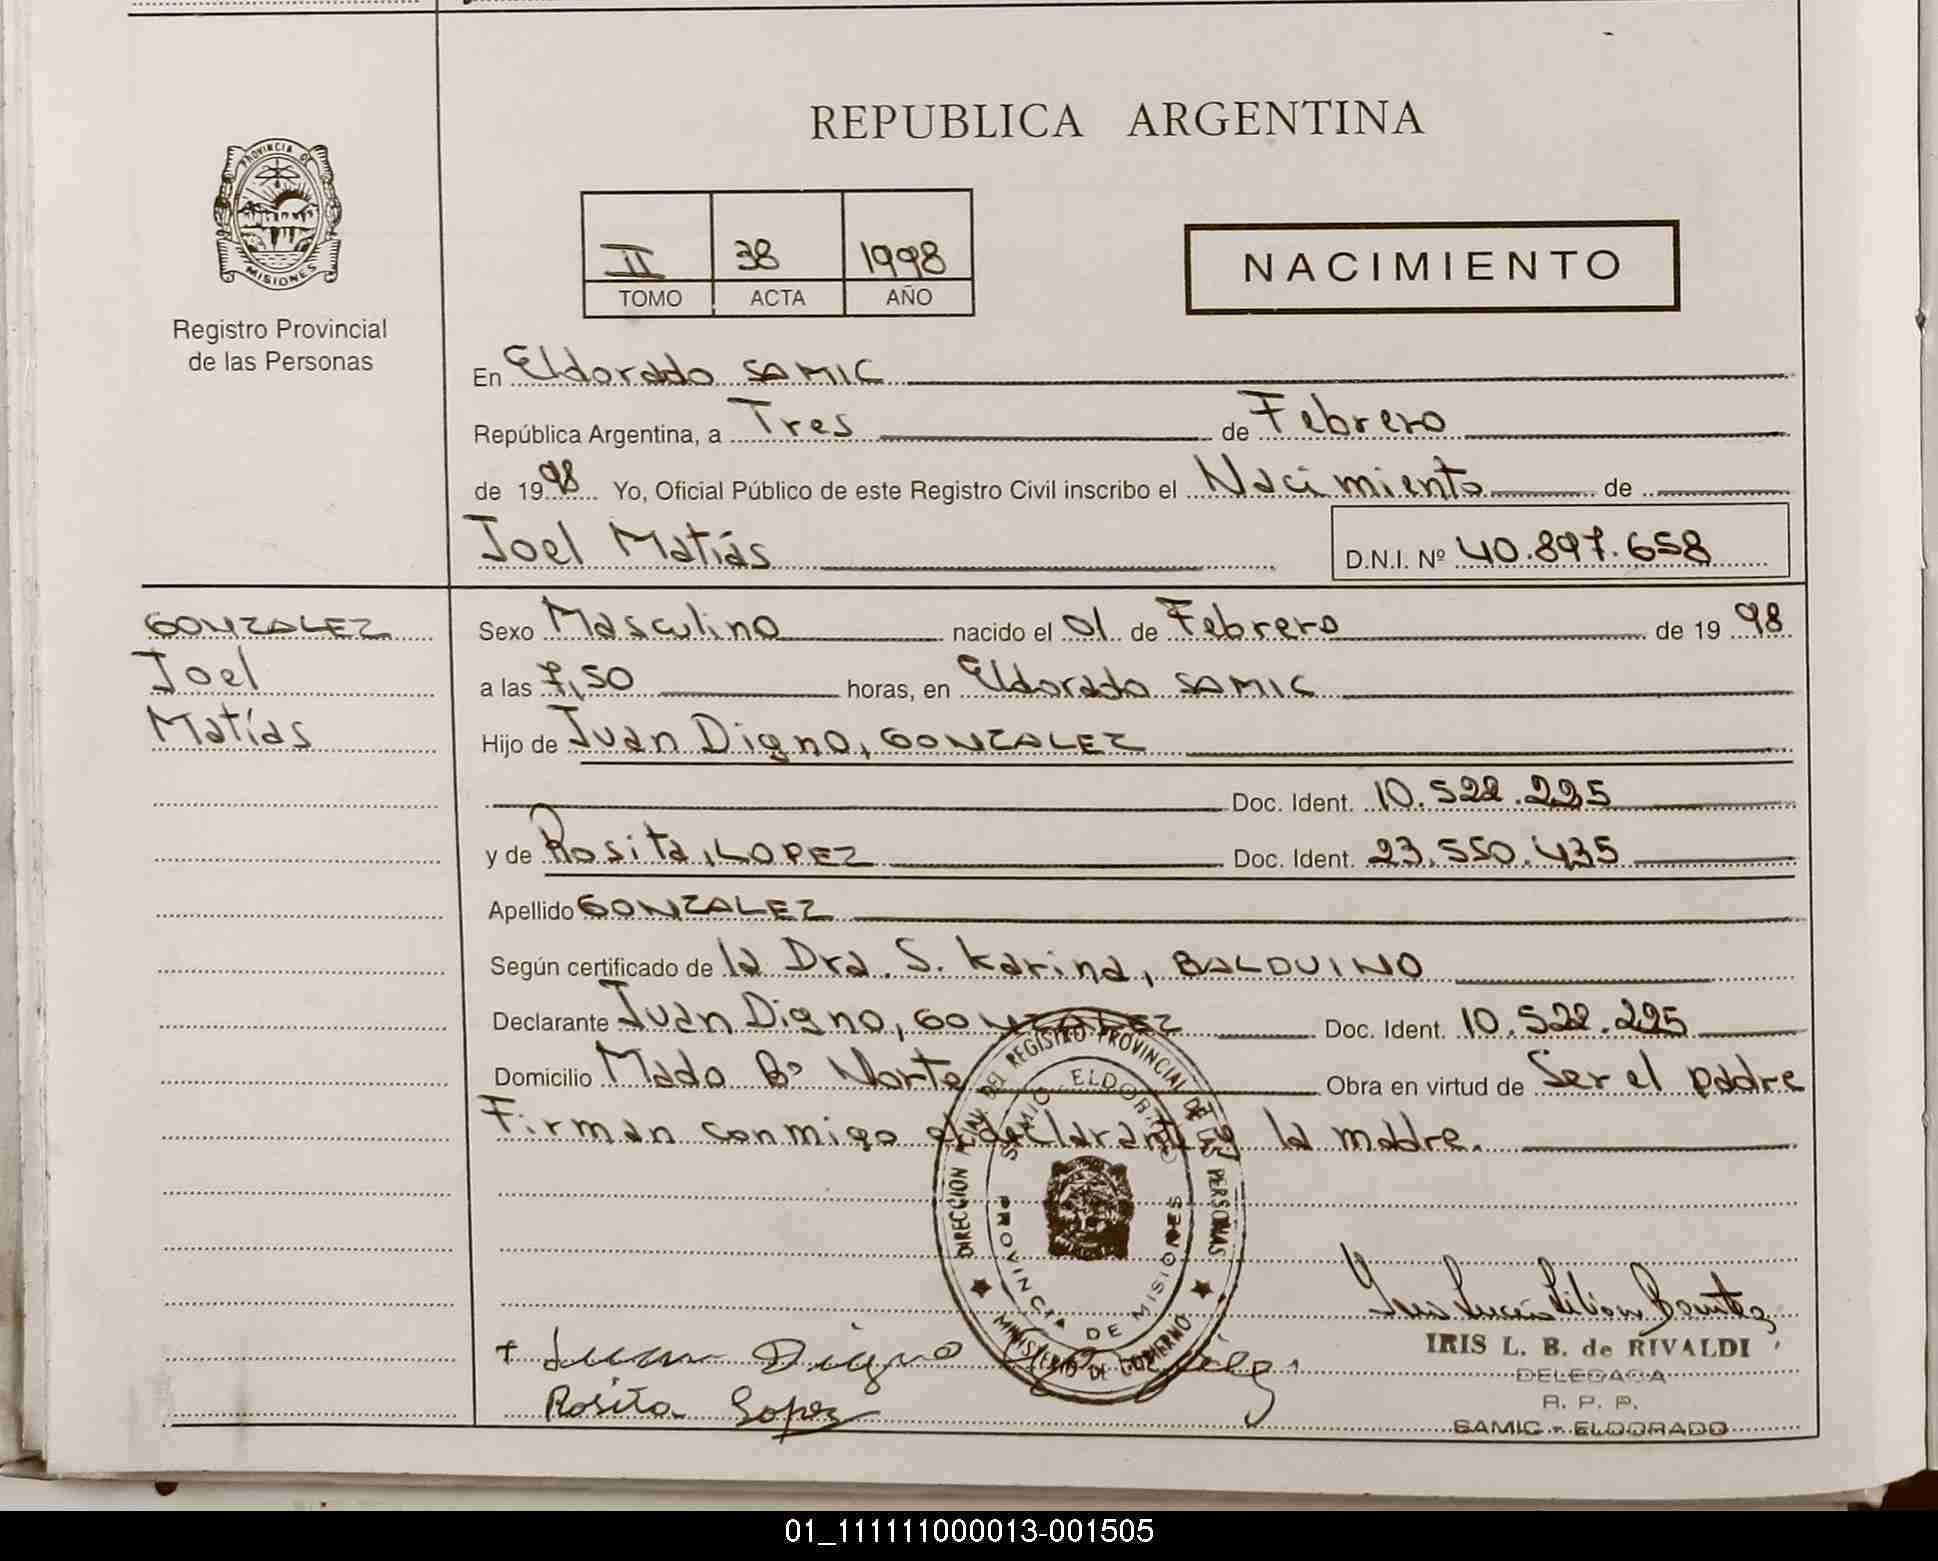 REPUBLICA ARGENTINA
PROVINCIA DE
MISIONES
Registro Provincial
de las Personas
II 38 1998
TOMO ACTA AÑO
NACIMIENTO
En Eldorado SAMIC
República Argentina, a Tres de Febrero
de 1998 Yo, Oficial Público de este Registro Civil inscribo el Nacimiento de
Joel Matías D.N.I. Nº 40.897.658
GONZALEZ
Joel
Matías
Sexo Masculino nacido el 01 de Febrero de 1998
a las 7,50 horas, en Eldorado SAMIC
Hijo de Juan Digno, GONZALEZ
Doc. Ident. 10.522.225
y de Rosita, LOPEZ Doc. Ident. 23.550.435
Apellido GONZALEZ
Según certificado de la Dra. S. Karina, BALDUINO
Declarante Juan Digno, GONZALEZ Doc. Ident. 10.522.225
Domicilio Mado Bº Norte Obra en virtud de Ser el padre
Firman conmigo el declarante y la madre.
DIRECCION DEL REGISTRO PROVINCIAL DE LAS PERSONAS
SAMIC ELDORADO
PROVINCIA DE MISIONES
MINISTERIO DE GOBIERNO
Juan Digno
Rosita Lopez
IRIS L. B. de RIVALDI
DELEGADA
R. P. P.
SAMIC - ELDORADO
01_111111000013-001505